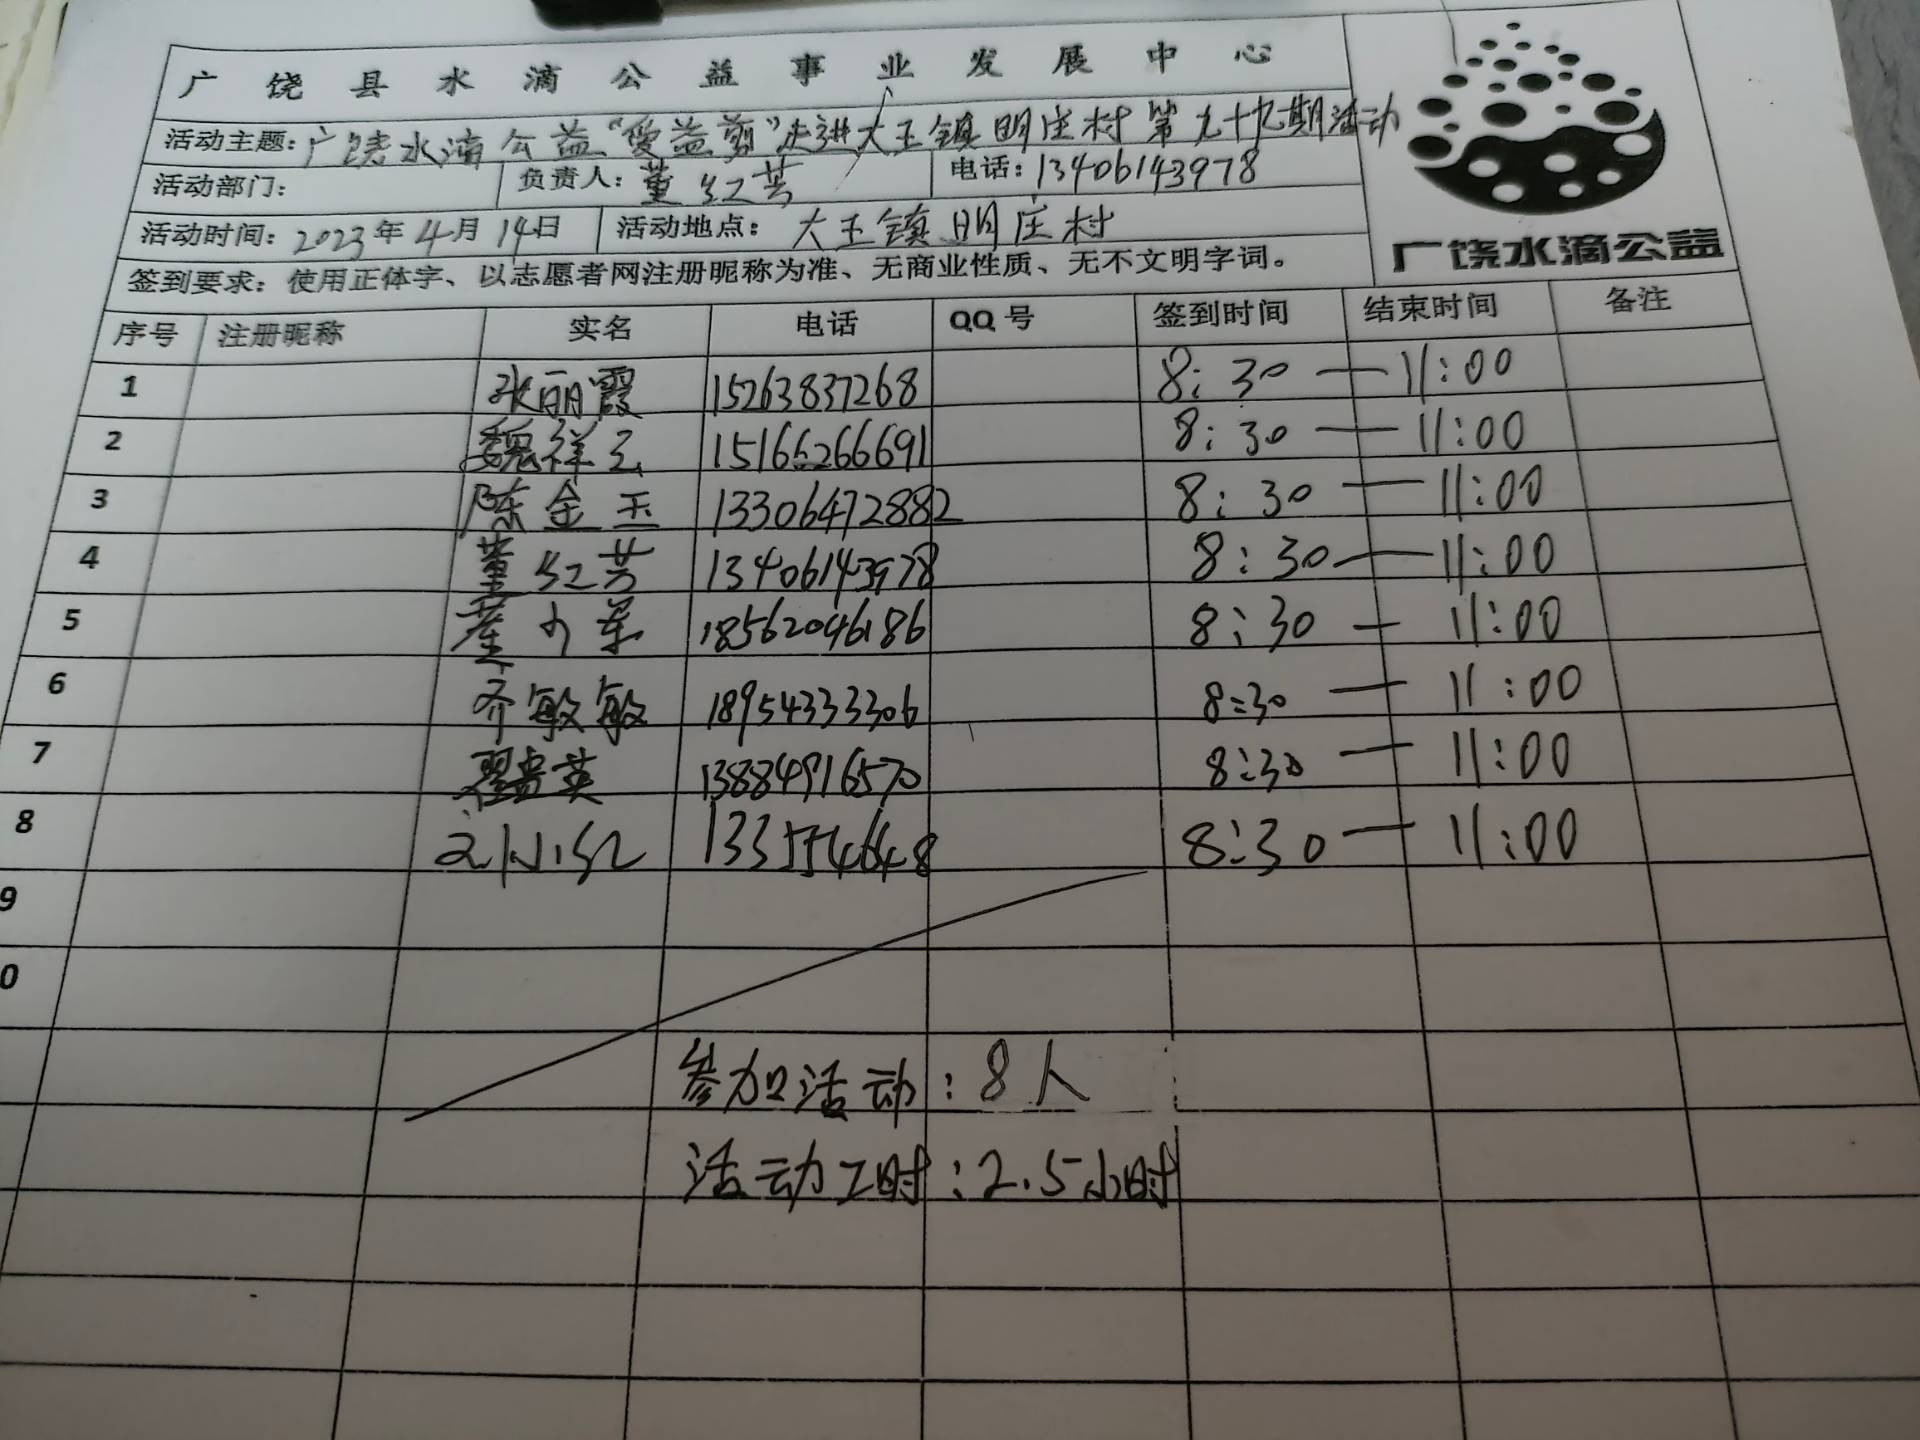 广饶县水滴公益事业发展中心
活动主题：广饶水滴公益“爱益剪”走进大王镇明庄村第九十九期活动
活动部门： 负责人：董红芳 电话：13406143978
活动时间：2023年4月14日 活动地点：大王镇明庄村
广饶水滴公益
签到要求：使用正体字、以志愿者网注册昵称为准、无商业性质、无不文明字词。
序号 注册昵称 实名 电话 QQ号 签到时间 结束时间 备注
1 张丽霞 15263837268 8:30 — 11:00
2 魏祥玉 15166266691 8:30 — 11:00
3 陈金玉 13306472882 8:30 — 11:00
4 董红芳 13406143978 8:30 — 11:00
5 18562046186 8:30 — 11:00
6 齐敏敏 18954333306 8:30 — 11:00
7 13884916570 8:30 — 11:00
8 8:30 — 11:00
9
0
参加活动：8人
活动工时：2.5小时